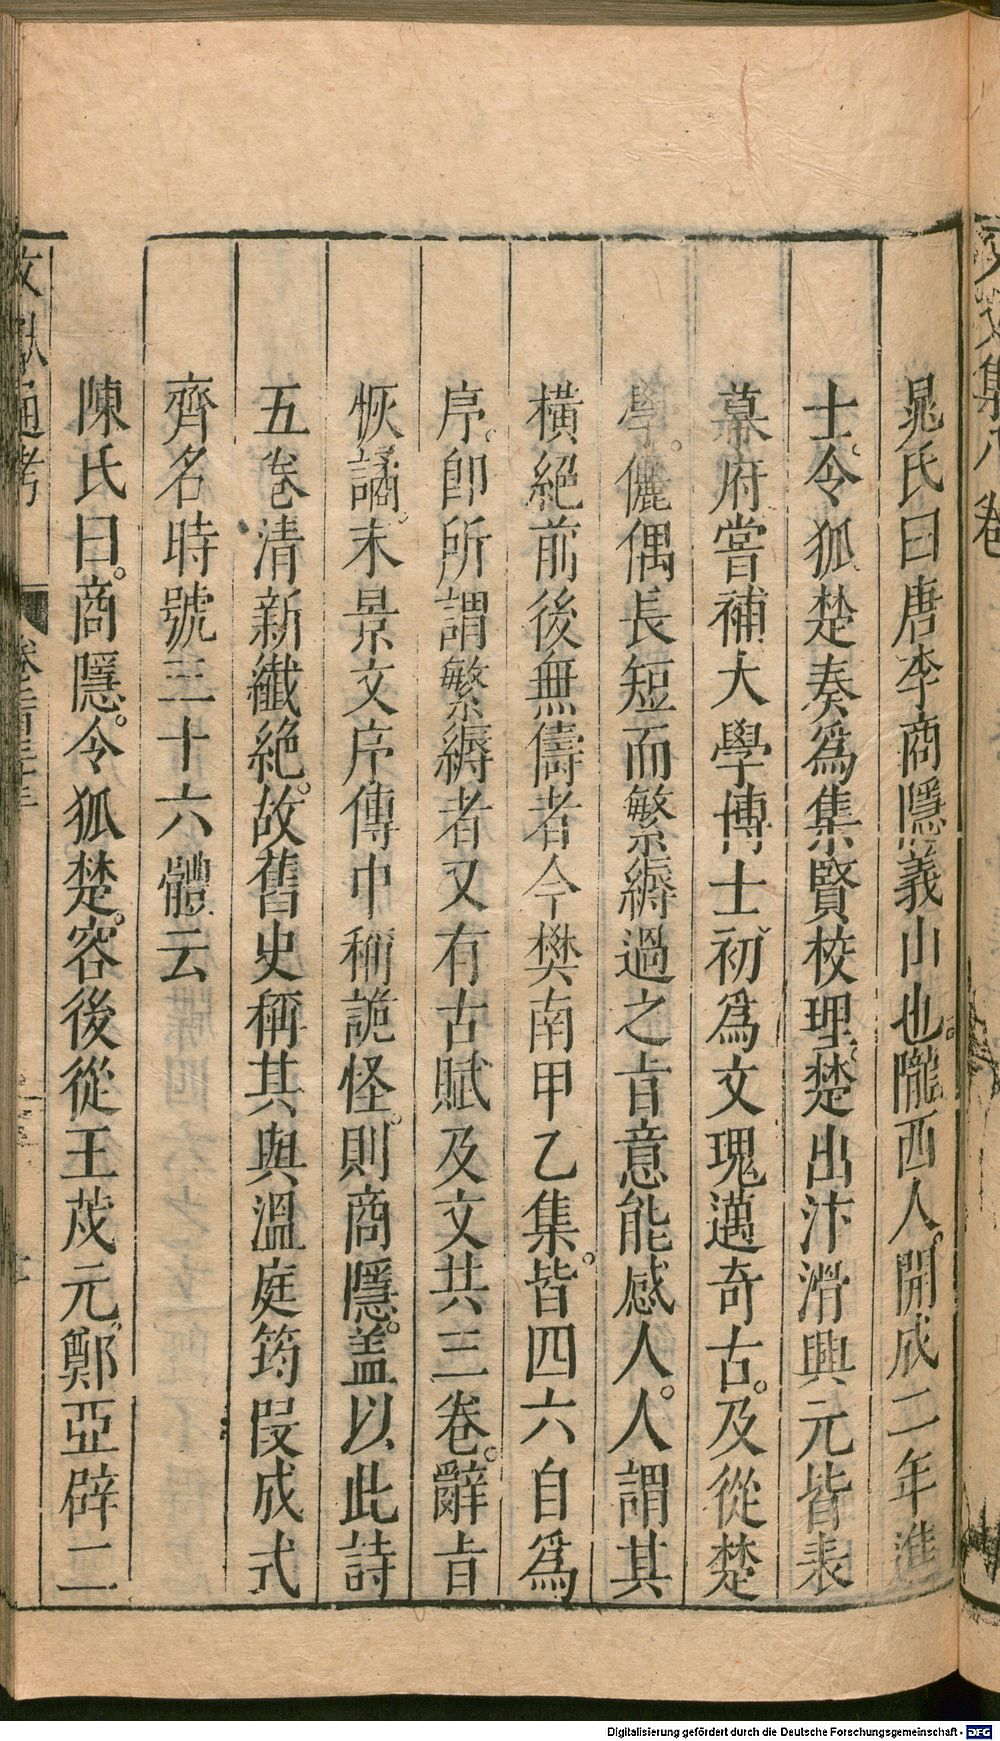 晁氏曰唐李商隱義山也隴西人開成二年進
士令狐楚奏爲集賢校理楚出汴滑興元皆表
幕府嘗補大學博士初爲文瑰邁奇古及從楚
學儷偶長短而繁縟過之旨意能感人人謂其
橫絕前後無儔者今樊南甲乙集皆四六自爲
序卽所謂繁縟者又有古賦及文共三卷辭旨
恢譎宋景文序傳中稱詭怪則商隱蓋以此詩
五卷清新纖絕故舊史稱其與溫庭筠段成式
齊名時號三十六體云
陳氏曰商隱令狐楚客後從王茂元鄭亞辟二
文獻通考
Digitalisierung gefördert durch die Deutsche Forschungsgemeinschaft - DFG